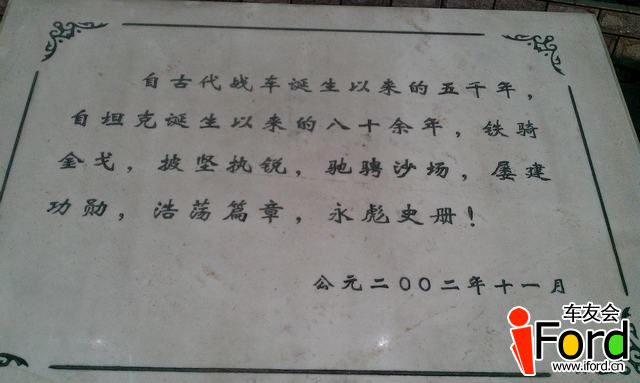 自古代战车诞生以来的五千年，
自坦克诞生以来的八十余年，铁骑
金戈，披坚执锐，驰骋沙场，屡建
功勋，浩荡篇章，永彪史册！
公元二〇〇二年十一月
车友会
iFord
www.iford.cn